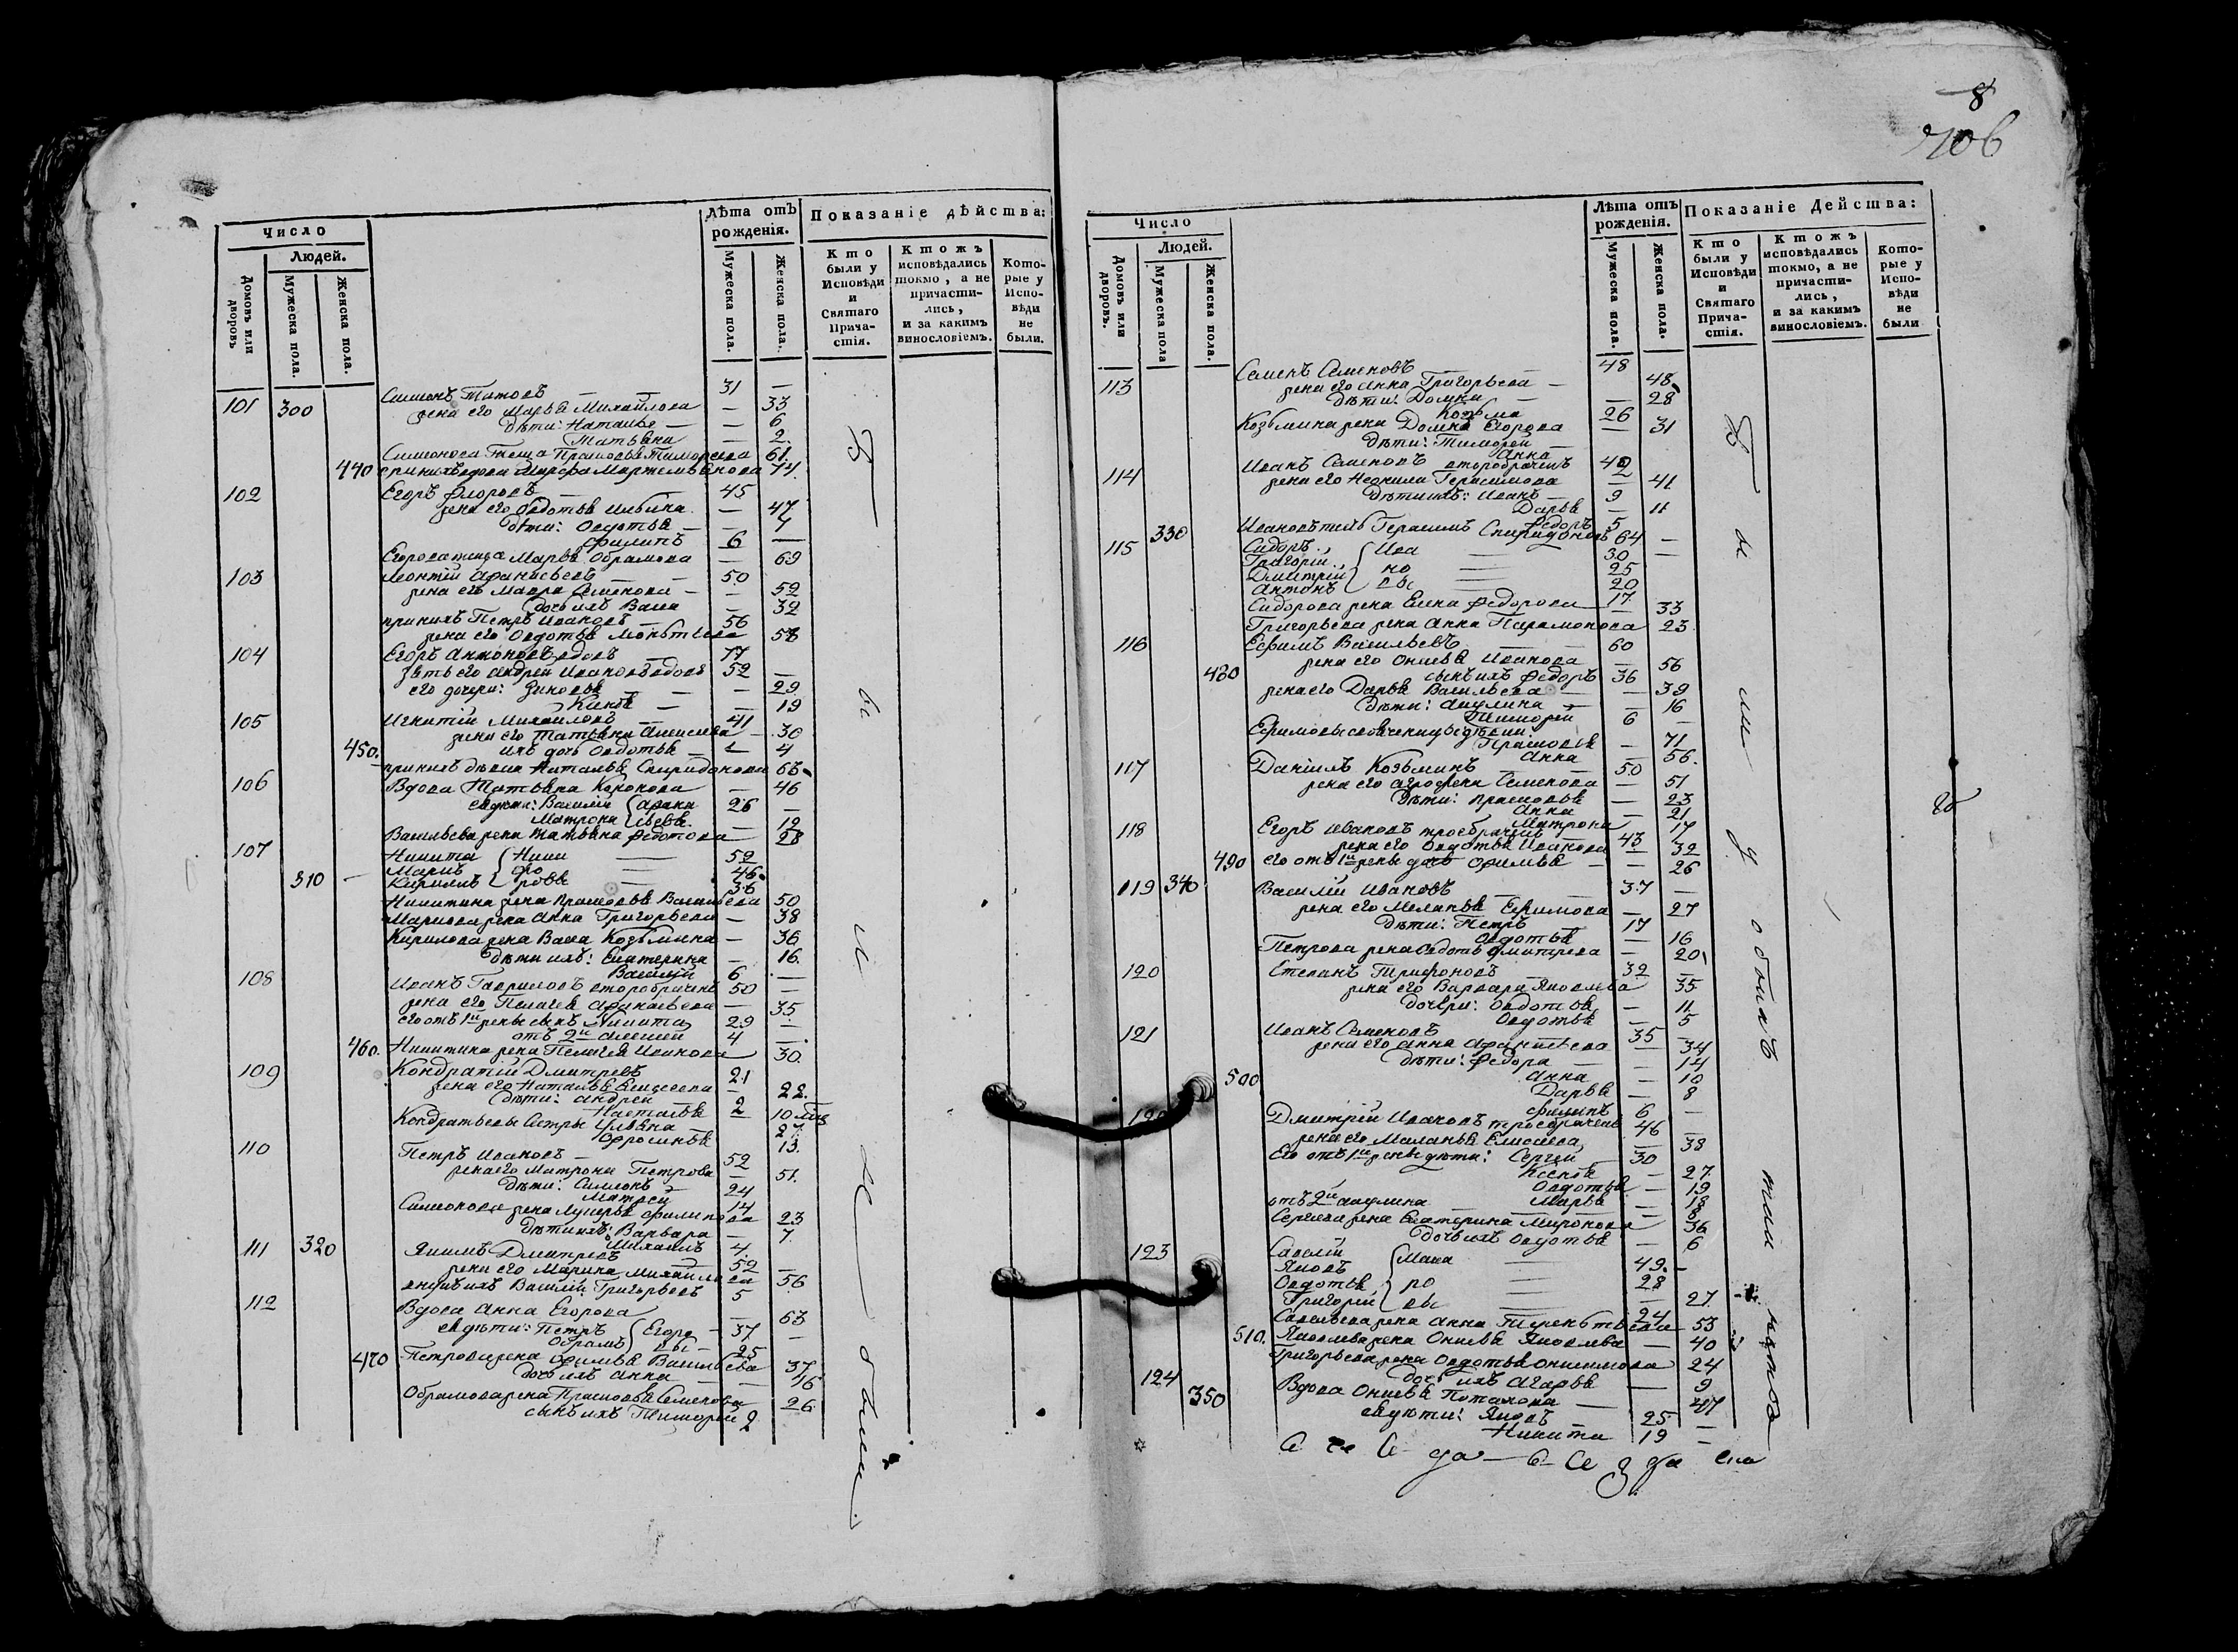 8
706
Число
Людей.
Домовъ или дворовъ
Мужеска пола.
Женска пола.
Лѣта отъ рожденія.
Мужеска пола.
Женска пола.
Показаніе дѣйства:
Кто были у Исповѣди и Святаго Причастія.
Ктожъ исповѣдались токмо, а не причастились, и за какимъ винословіемъ.
Которые у Исповѣди не были.
101 300 Симонъ Титовъ — 31 —
жена его Марья Михайлова — 33
дѣти: Наталья — 6
Татьяна — 2.
Симонова теща Прасковья Тимофеева 61.
440 при нихъ вдова Марфа 74.
102 Егоръ Флоровъ 45
жена его Овдотья Ильина — 47
дѣти: Овдотья — 7
Филипъ 6 —
Егорова теща Марья Обрамова — 69
103 Леонтій Афанасьевъ — 50
жена его Мавра Семенова — 52
дочь ихъ Васса — 32
при нихъ Петръ Ивановъ 56
жена его Овдотья 58
104 Егоръ Антоновъ вдовъ 77
зять его Андрей Ивановъ вдовъ 52 —
его дочери: Зиновья — 29
19
105 Игнатій Михайловъ — 41
жена его Татьяна Алексеева — 30
450. ихъ дочь Овдотья — 4
при нихъ девка Наталья Спиридонова 63
106 Вдова Татьяна — 46
ея дѣти: Василій 26 —
Матрона — 19
Васильева жена Татьяна Федотова — 28
107 Никита 52
Маркъ 46
310 — Кирилъ 36
Никитина жена Прасковья Васильева 50
Маркова жена Анна Григорьева — 38
Кирилова жена Васса Козьмина — 36
дѣти ихъ: Екатерина — 16.
Василій 6 —
108 Иванъ Гавриловъ второбрачный 50 —
жена его Пелагея Афанасьева — 35.
его отъ 1й жены сынъ Никита 29 —
отъ 2й Алексей 4 —
460. Никитина жена Пелагея Иванова 30.
109 Кондратій Дмитревъ 21
жена его Наталья Елисеева — 22.
дѣти: Андрей 2
Настасья — 10
Кондратьевы сестры Ульяна 27.
Афросинья 13.
110 Петръ Ивановъ — 52
жена его Матрона Петрова — 51.
дѣти: Симеонъ 24
Матвей 14
Симеонова жена Лукерья Филипова 23
дѣти ихъ: Варвара — 7
Михаилъ 4.
111 320 Якимъ Дмитревъ 52 —
жена его Марина Михайлова 56
внукъ ихъ Василій Григорьевъ 5
112 Вдова Анна Егорова — 63
ея дѣти: Петръ Егоро 37 —
Обрамъ вы 25
470 Петрова жена Афимья Васильева 37
дочь ихъ Анна — 16
Обрамова жена Прасковья Семенова 26
сынъ ихъ Тимофей 2
были
Число
Людей.
Домовъ или дворовъ.
Мужеска пола
Женска пола.
Лѣта отъ рожденія.
Мужеска пола.
Женска пола.
Показаніе Действа:
Кто были у Исповѣди и Святаго Причастія.
Ктожъ исповѣдались токмо, а не причастились, и за какимъ винословіемъ.
Которые у Исповѣди не были
113 Семенъ Семеновъ 48
жена его Анна Григорьева — 48.
дѣти: Домна — 28
Козьма 26
Козьмина жена Домна Егорова — 31
дѣти: Тимофей
Анна
114 Иванъ Семеновъ второбрачный
жена его Неонила Герасимова — 41
дѣти ихъ: Иванъ 9
Дарья — 11
Федоръ 5
330 Ивановъ тесть Герасимъ Спиридоновъ 64 —
115 Сидоръ, Ива 30 —
Григорій, но 25
Дмитрій вы 20
Антонъ 17
Сидорова жена Елена Федорова 33
Григорьева жена Анна Парамонова 23.
116 Ефимъ Васильевъ 60
жена его Оксинья Иванова — 56
480 сынъ ихъ Федоръ 36
жена его Дарья Васильева — 39
дѣти: Акулина — 16
Тимофей 6 —
Прасковья — 71
Анна 56.
117 Даніилъ Козьминъ 50
жена его Агрофена Семенова — 51
дѣти: Прасковья — 23
Анна — 21
Матрона 17
118 Егоръ Ивановъ троебрачный 43
жена его Овдотья Иванова — 32
490 его отъ 1й жены дочь Афимья — 26
119 340 Василій Ивановъ 37 —
жена его Меланья Ефимова — 27
дѣти: Петръ 17
Овдотья — 16
Петрова жена Овдотья Дмитрева 20
120 Степанъ Трифоновъ 32 —
жена его Варвара Яковлева 35
дочери: Овдотья — 11
Овдотья — 5
121 Иванъ Семеновъ 35 —
жена его Анна Афанасьева — 34
дѣти: Федора — 14
500 Анна — 10
Дарья — 8
Филипъ 6 —
Дмитрій Ивановъ троебрачный 46 —
жена его Маланья Елисеева — 38
его отъ 1й жены дѣти: Сергей 30
Ксенья — 27.
Овдотья — 19
Марья — 18
отъ 2й Акулина — 8
Сергеева жена Екатерина Миронова 36
дочь ихъ Овдотья — 6
123 Савелій Мака 49 —
Яковъ 28
Овдотья, ро — 27.
Григорій вы 24
Савельева жена Анна Терентьева 53
510. Яковлева жена Оксинья Яковлева — 40
Григорьева жена Овдотья Онисимова 24
дочь ихъ Агафья — 9
124 350 Вдова Оксинья Потапова — 47
ея дѣти: Яковъ 25 —
Никита 19 —